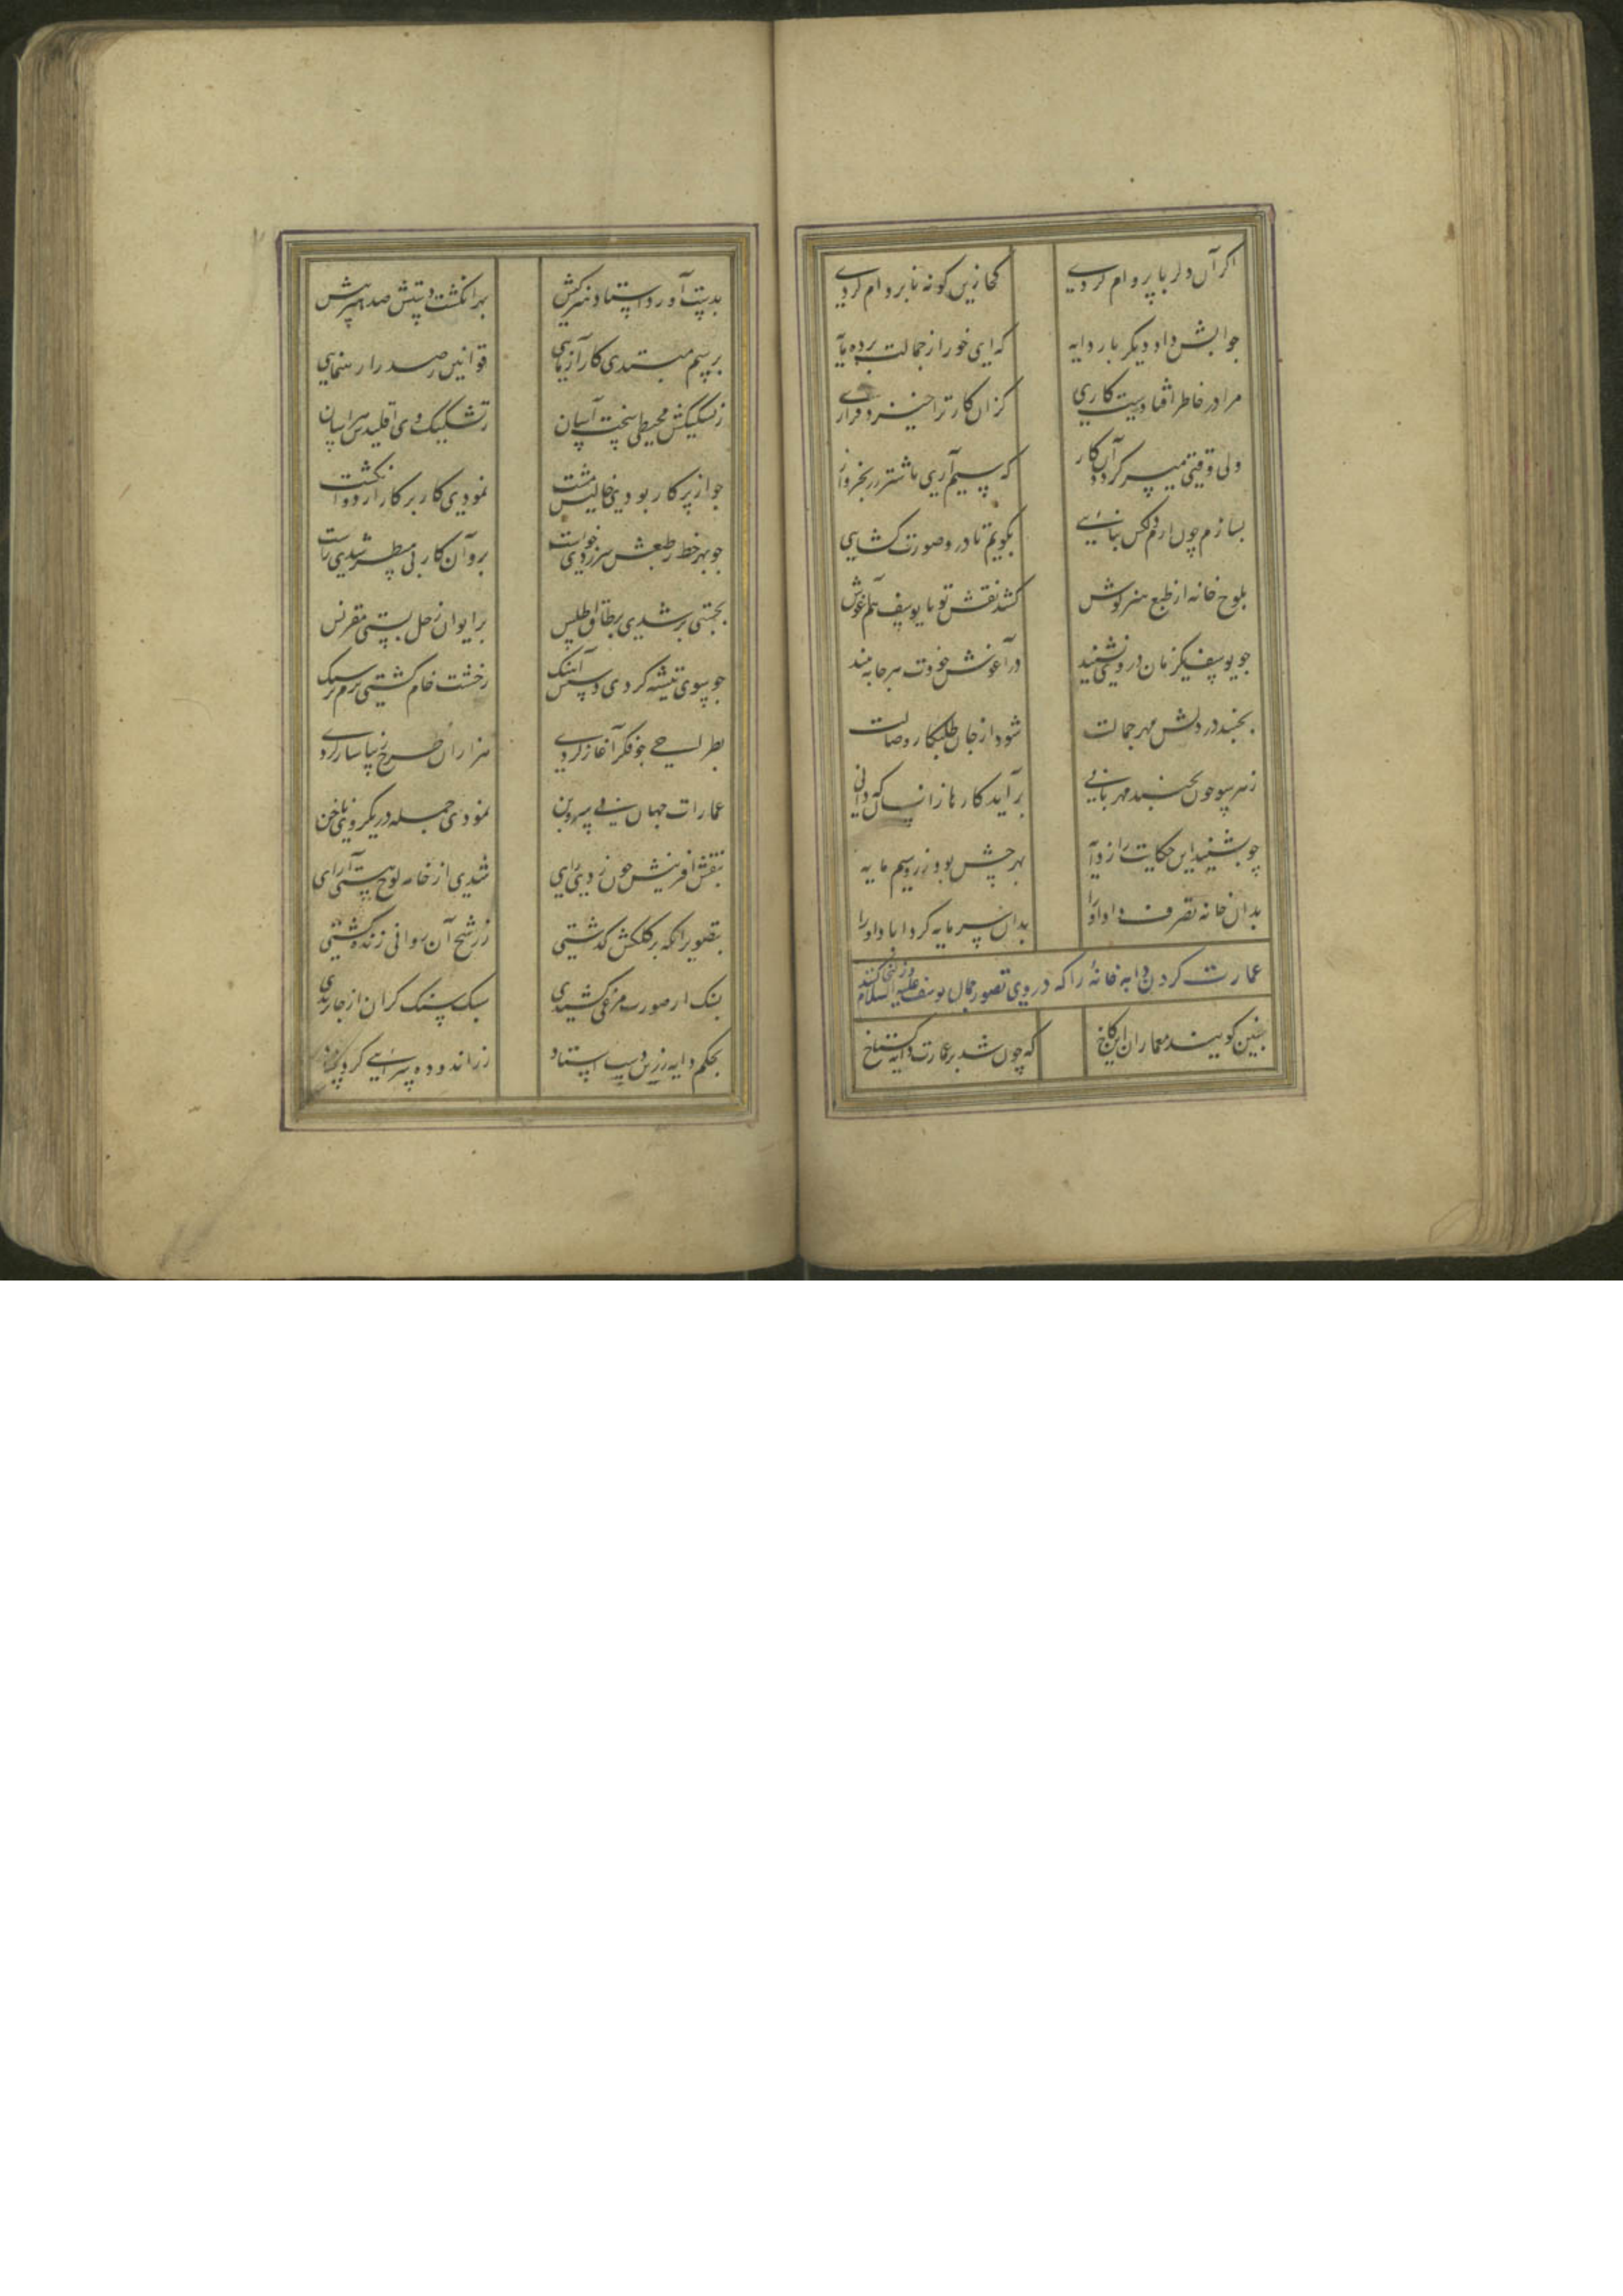 اگر آن دلربا پروام کردی کجا زین گونه نابروام کردی
جوابش داد دیگر بار دایه که ای خور از جمالت برده مایه
مرا در خاطر افتادست کاری کزان کار ترا خیزد قراری
ولی وقتی میسر گردد آن کار که سیم آری باشتر زر بخروار
بسازم چون ارم دلکش بنایی بگویم تا درو صورت کشایی
بلوح خانه از طبع هنر کوش کشد نقش تو با یوسف هم آغوش
جو یوسف یکزمان در وی نشیند در آغوش خودت هر جا ببیند
بجنبد در دلش مهر جمالت شود از جان طلبکار وصالت
ز هر سو چون بجنبد مهربانی برآید کارها زانسان که دانی
چو بشنید این حکایت را ز دایه بهر چش بود ز زر و سیم مایه
بدان خانه تصرف داد او را بدان سرمایه کرد آباد او را
عمارت کردن دایه خانهٔ را که در وی تصور جمال یوسف علیه السلام و زلیخا کنند
چنین گویند معماران این کاخ که چون شد بر عمارت دایه گستاخ
بدست آورد استاد هنرکش بهر انگشت دستش صد هنر بیش
برسم هندسی کار آزمایی قوانین رصد را رهنمایی
ز تشکیکش محیطی سخت آسان ز تشکیک وی اقلیدس هراسان
جو از پرکار بودی خالیش مشت نمودی کار پرکار از دو انگشت
جو بهر خط ز طبعش سر زدی خواست برو آن کار بی مسطر شدی راست
بجستی بر شدی بر طاق اطلس بر ایوان زحل بستی مقرنس
جو سوی تیشه کردی دستش آهنگ ز خشت خام گشتی نرم تر سنگ
بطراحی جو فکر آغاز کردی هزاران طرح زیبا ساز کردی
عمارات جهان نی پی سر و بن نمودی جمله در یک روی ناخن
بنقش آفرینش چون زدی رای شدی از خامه لوح هستی آرای
بتصویر آنکه بر کلکش گذشتی ز رشح آن روانی زنده گشتی
بسنگ ار صورت مرغی کشیدی سبک سنگ گران از جا پریدی
بحکم دایه زرین دست استاد زر اندوده سرایی کرد بنیاد